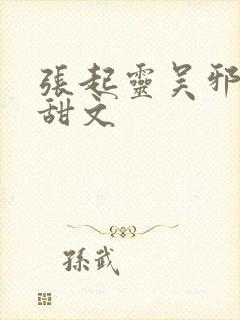 張起靈吴邪
甜文
孫武